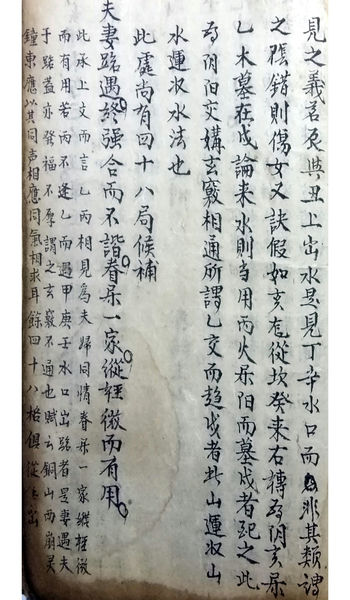 見之義若辰與丑上出水是見丁辛水口而非其類謂
之張錯則傷女又訣假如亥龍從坎癸来右轉為阴亥屬
乙木墓在戌論来水則当用丙火屬阳而墓戌者記之此
為阴阳交媾玄竅相通所謂乙交而趋戌者此山運収山
水運収水法也
此處尚有四十八局候補
夫妻路遇終强合而不諧眷屬一家縱輕微而有用
此承上文而言乙丙相見為夫婦同情眷屬一家縱輕微
而有用若丙不逢乙而遇甲庚壬水口出路者是妻遇夫
于路盖亦發福不厚謂之玄竅不通也賦云銅山西崩灵
鐘東應以其同声相應同氣相求耳餘四十八格俱從